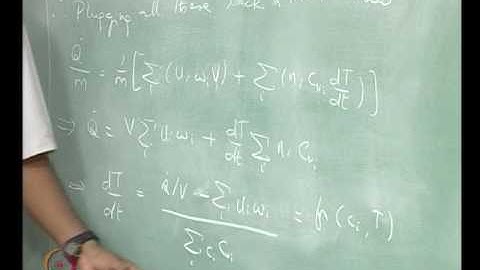 Plugging all these back
Q̇/m = 1/m [ Σᵢ (Uᵢ ωᵢ V) + Σᵢ (nᵢ Cᵥᵢ dT/dt) ]
⇒ Q̇ = V Σᵢ Uᵢ ωᵢ + dT/dt Σᵢ nᵢ Cᵥᵢ
⇒ dT/dt = (Q̇/V − Σᵢ Uᵢ ωᵢ) / (Σᵢ cᵢ Cᵢ) = fn (cᵢ, T)